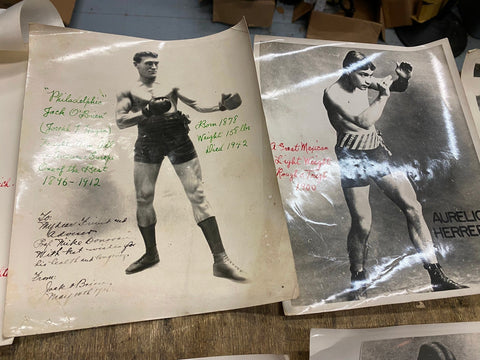 "Philadelphia"
Jack O'Brien
One of the Best
1896-1912
Born 1878
Weight 158 lbs
Died 1942
To
My dear friend and
Advisor
Prof Mike Donovan
With best wishes for
his health and
From
Jack O'Brien
May 10th
A Great Mexican
Light Weight
Rough & Tough
AURELIO
HERRER